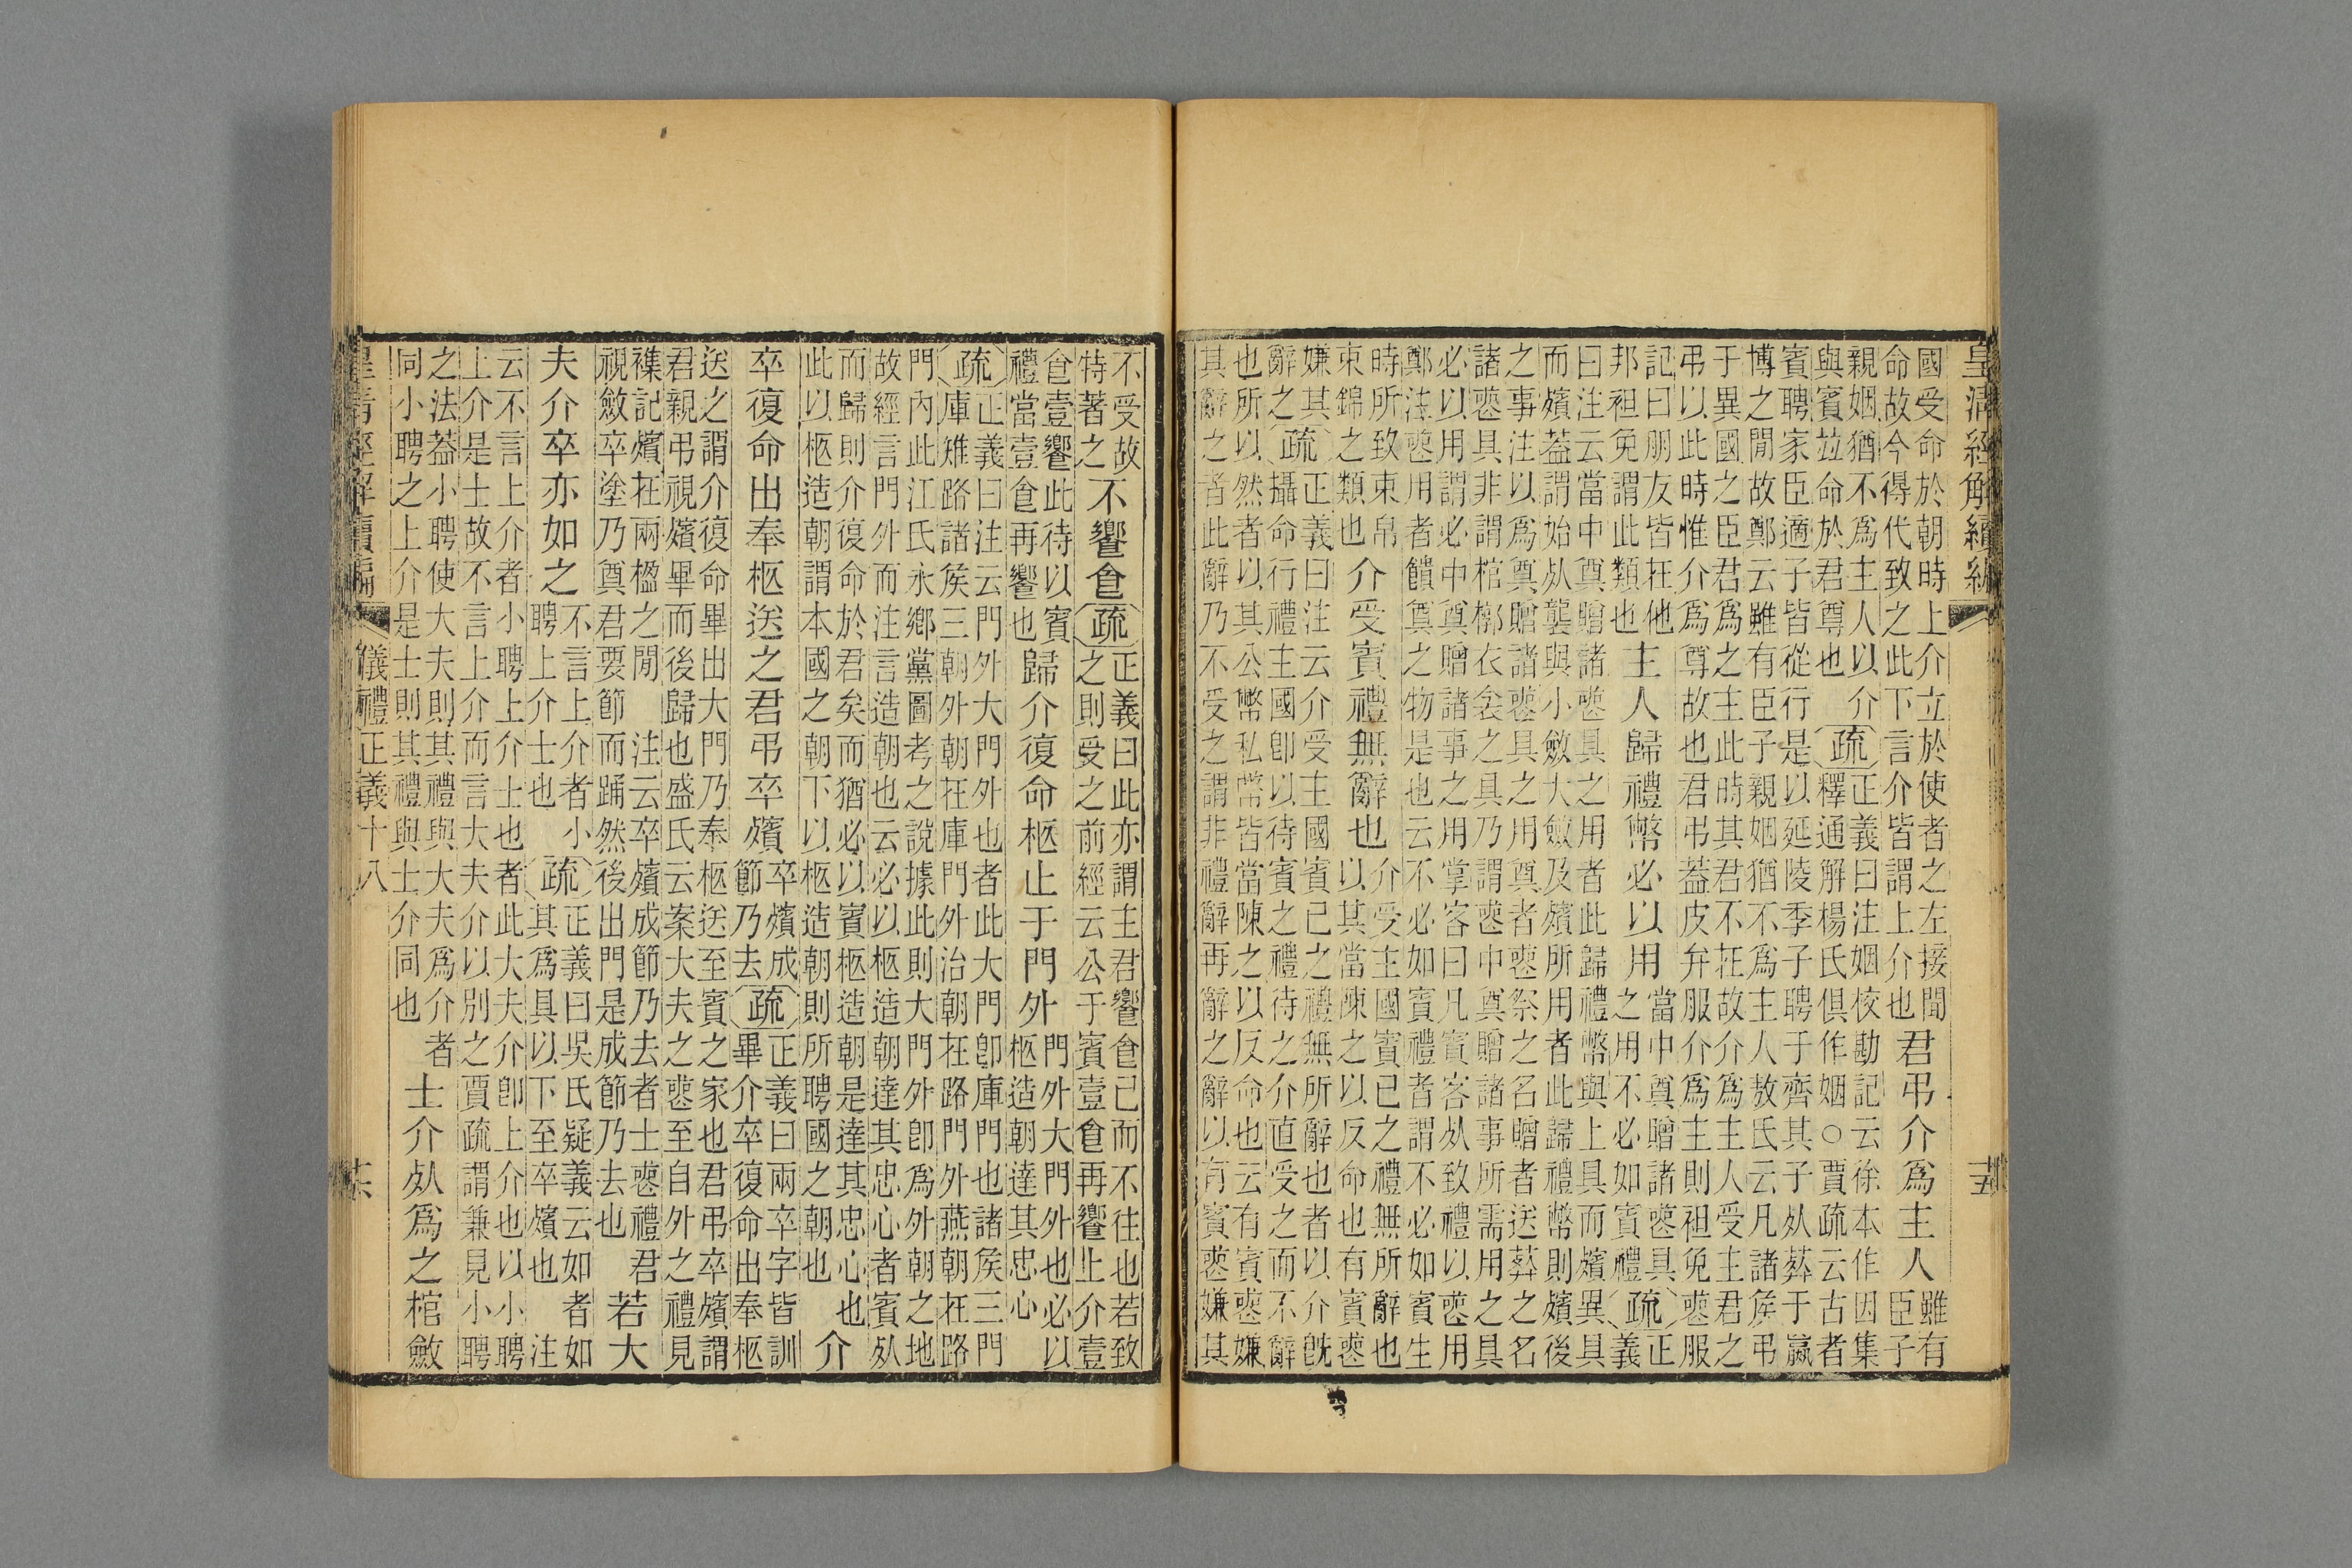 皇清經解續編
十五
國受命於朝時上介立於使者之左接聞
命故今得代致之此下言介皆謂上介也
君弔介爲主人
雖有
臣子
親姻猶不爲主人以介
與賓竝命於君尊也
疏
正義曰注姻校勘記云徐本作因集
釋通解楊氏俱作姻○賈疏云古者
賓聘家臣適子皆從行是以延陵季子聘于齊其子死葬于嬴
博之閒故鄭云雖有臣子親姻猶不爲主人敖氏云凡諸侯弔
于異國之臣君爲之主此時其君不在故介爲主人受主君之
弔以此時惟介爲尊故也君弔葢皮弁服介爲主則袒免喪服
記曰朋友皆在他
邦袒免謂此類也
主人歸禮幣必以用
當中奠贈諸喪具
之用不必如賓禮
疏
正
義
曰注云當中奠贈諸喪具之用者此歸禮幣與上具而殯異具
而殯葢謂始死襲與小斂大斂及殯所用者此歸禮幣則殯後
之事注以爲奠贈諸喪具之用奠者喪祭之名贈者送葬之名
諸喪具非謂棺槨衣衾之具乃謂喪中奠贈諸事所需用之具
必以用謂必中奠贈諸事之用掌客曰凡賓客死致禮以喪用
鄭注喪用者饋奠之物是也云不必如賓禮者謂不必如賓生
時所致束帛
束錦之類也
介受賓禮無辭也
介受主國賓已之禮無所辭也
以其當陳之以反命也有賓喪
嫌其
辭之
疏
正義曰注云介受主國賓已之禮無所辭也者以介旣
攝命行禮主國卽以待賓之禮待之介直受之而不辭
也所以然者以其公幣私幣皆當陳之以反命也云有賓喪嫌
其辭之者此辭乃不受之謂非禮辭再辭之辭以有賓喪嫌其
不受故
特著之
不饗食
疏
正義曰此亦謂主君饗食已而不往也若致
之則受之前經云公于賓壹食再饗上介壹
食壹饗此待以賓
禮當壹食再饗也
歸介復命柩止于門外
門外大門外也必以
柩造朝達其忠心
疏
正義曰注云門外大門外也者此大門卽庫門也諸侯三門
庫雉路諸侯三朝外朝在庫門外治朝在路門外燕朝在路
門內此江氏永鄉黨圖考之說據此則大門外卽爲外朝之地
故經言門外而注言造朝也云必以柩造朝達其忠心者賓死
而歸則介復命於君矣而猶必以賓柩造朝是達其忠心也
此以柩造朝謂本國之朝下以柩造朝則所聘國之朝也
介
卒復命出奉柩送之君弔卒殯
卒殯成
節乃去
疏
正義曰兩卒字皆訓
畢介卒復命出奉柩
送之謂介復命畢出大門乃奉柩送至賓之家也君弔卒殯謂
君親弔視殯畢而後歸也盛氏云案大夫之喪至自外之禮見
襍記殯在兩楹之閒 注云卒殯成節乃去者士喪禮君
視斂卒塗乃奠君要節而踊然後出門是成節乃去也
若大
夫介卒亦如之
不言上介者小
聘上介士也
疏
正義曰吳氏疑義云如者如
其爲具以下至卒殯也 注
云不言上介者小聘上介士也者此大夫介卽上介也以小聘
上介是士故不言上介而言大夫介以別之賈疏謂兼見小聘
之法葢小聘使大夫則其禮與大夫爲介者
同小聘之上介是士則其禮與士介同也
士介死爲之棺斂
皇清經解續編
儀禮正義十八